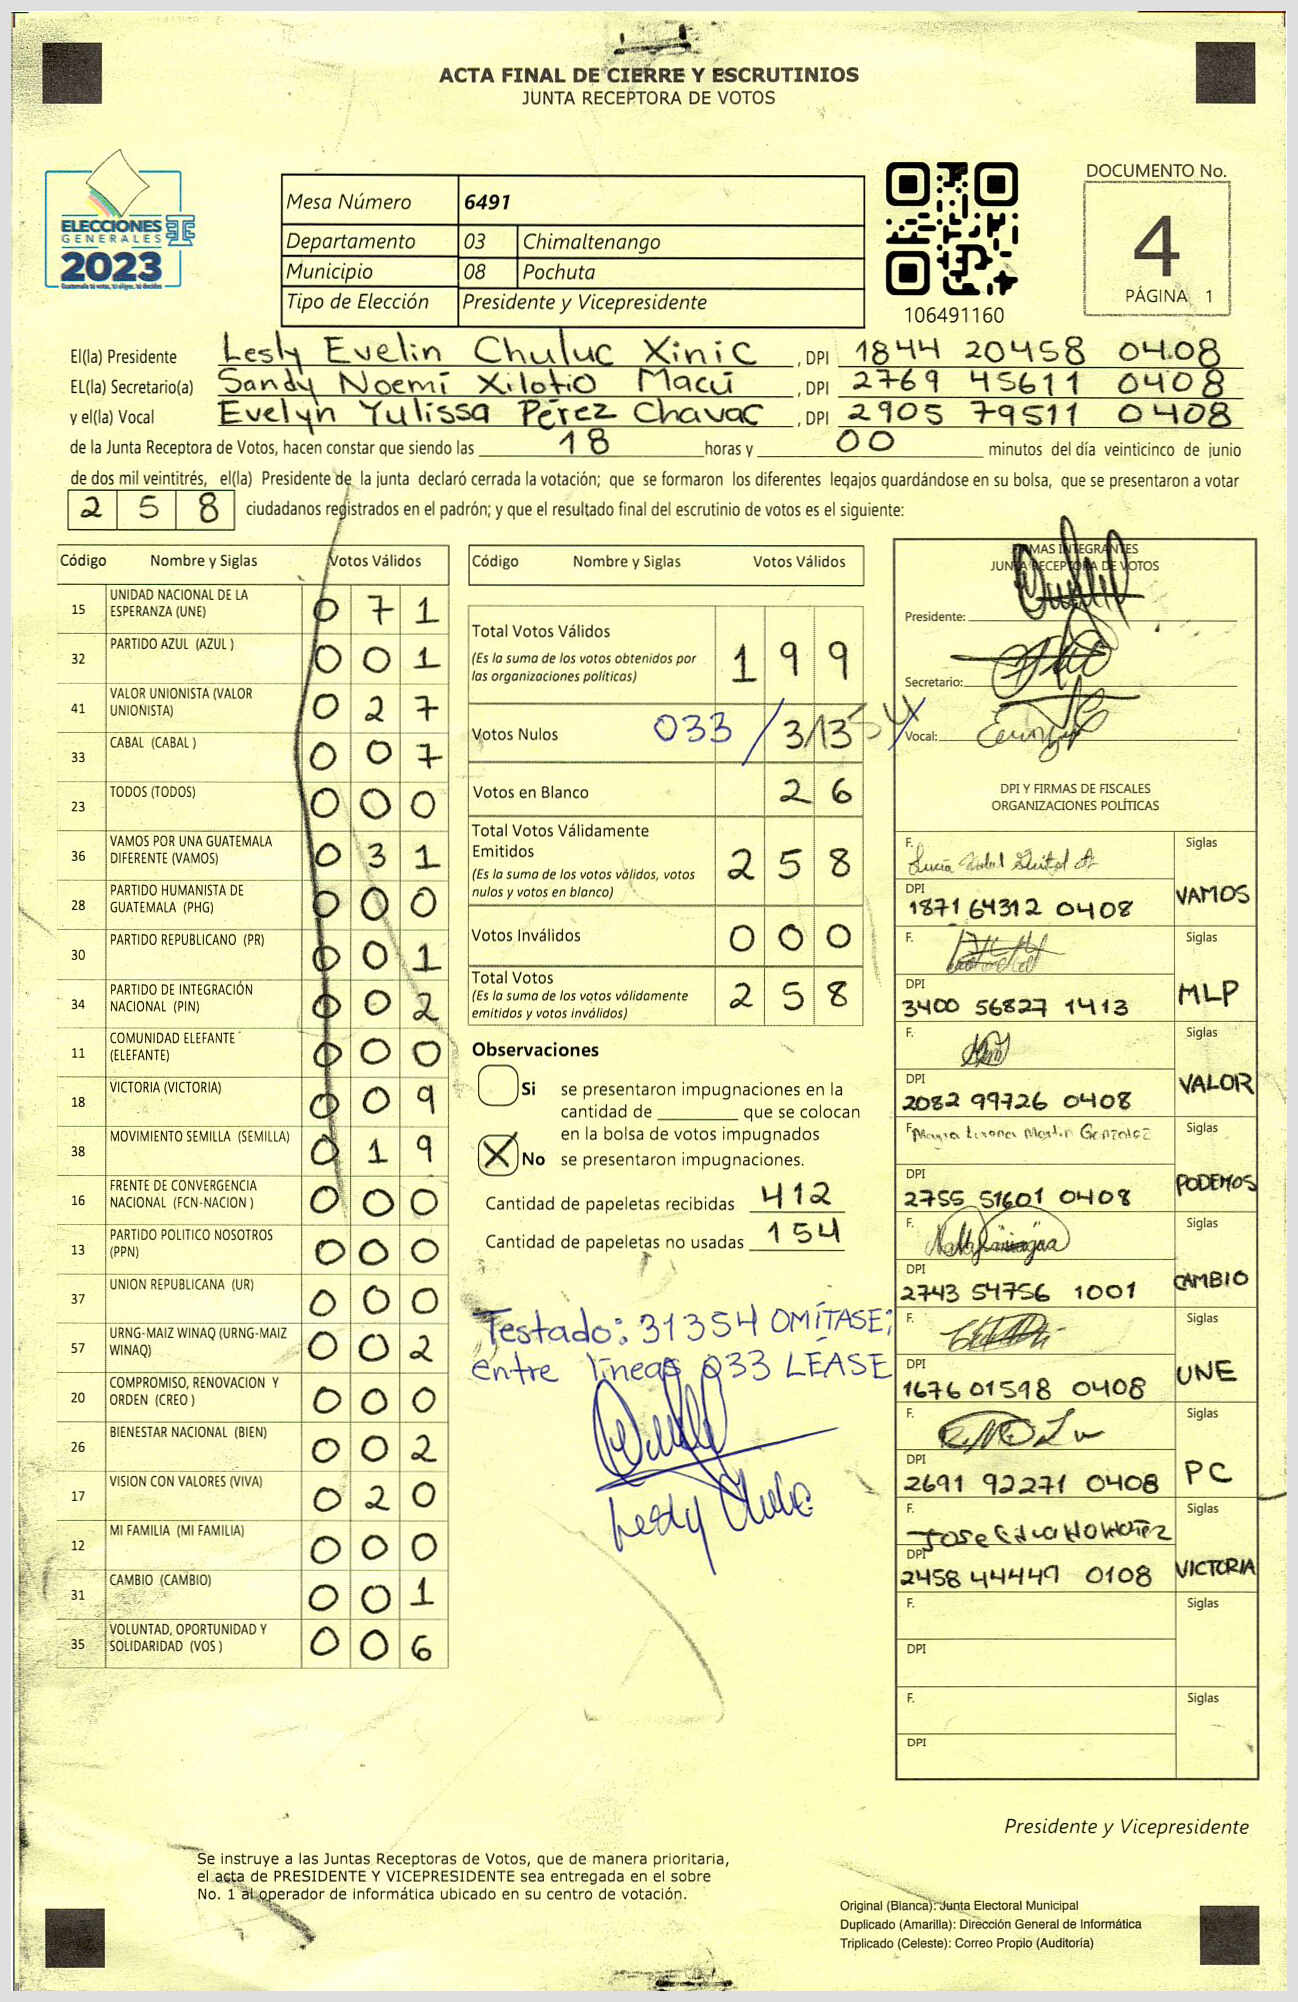 ACTA FINAL DE CIERRE Y ESCRUTINIOS
JUNTA RECEPTORA DE VOTOS
ELECCIONES
GENERALES
2023
Mesa Número 6491
Departamento 03 Chimaltenango
Municipio 08 Pochuta
Tipo de Elección Presidente y Vicepresidente
106491160
DOCUMENTO No.
4
PÁGINA 1
El(la) Presidente Lesly Evelin Chuluc Xinic , DPI 1844 20458 0408
EL(la) Secretario(a) Sandy Noemí Xilotio Macú , DPI 2769 45611 0408
y el(la) Vocal Evelyn Yulissa Pérez Chavac , DPI 2905 79511 0408
de la Junta Receptora de Votos, hacen constar que siendo las 18 horas y 00 minutos del día veinticinco de junio
de dos mil veintitrés, el(la) Presidente de la junta declaró cerrada la votación; que se formaron los diferentes legajos guardándose en su bolsa, que se presentaron a votar
258 ciudadanos registrados en el padrón; y que el resultado final del escrutinio de votos es el siguiente:
Código Nombre y Siglas Votos Válidos
15 UNIDAD NACIONAL DE LA ESPERANZA (UNE) 0 7 1
32 PARTIDO AZUL (AZUL ) 0 0 1
41 VALOR UNIONISTA (VALOR UNIONISTA) 0 2 7
33 CABAL (CABAL ) 0 0 7
23 TODOS (TODOS) 0 0 0
36 VAMOS POR UNA GUATEMALA DIFERENTE (VAMOS) 0 3 1
28 PARTIDO HUMANISTA DE GUATEMALA (PHG) 0 0 0
30 PARTIDO REPUBLICANO (PR) 0 0 1
34 PARTIDO DE INTEGRACIÓN NACIONAL (PIN) 0 0 2
11 COMUNIDAD ELEFANTE (ELEFANTE) 0 0 0
18 VICTORIA (VICTORIA) 0 0 9
38 MOVIMIENTO SEMILLA (SEMILLA) 0 1 9
16 FRENTE DE CONVERGENCIA NACIONAL (FCN-NACION ) 0 0 0
13 PARTIDO POLITICO NOSOTROS (PPN) 0 0 0
37 UNION REPUBLICANA (UR) 0 0 0
57 URNG-MAIZ WINAQ (URNG-MAIZ WINAQ) 0 0 2
20 COMPROMISO, RENOVACION Y ORDEN (CREO ) 0 0 0
26 BIENESTAR NACIONAL (BIEN) 0 0 2
17 VISION CON VALORES (VIVA) 0 2 0
12 MI FAMILIA (MI FAMILIA) 0 0 0
31 CAMBIO (CAMBIO) 0 0 1
35 VOLUNTAD, OPORTUNIDAD Y SOLIDARIDAD (VOS ) 0 0 6
Código Nombre y Siglas Votos Válidos
Total Votos Válidos 1 9 9
(Es la suma de los votos obtenidos por
las organizaciones políticas)
Votos Nulos 033 / 31354
Votos en Blanco 2 6
Total Votos Válidamente
Emitidos 2 5 8
(Es la suma de los votos válidos, votos
nulos y votos en blanco)
Votos Inválidos 0 0 0
Total Votos 2 5 8
(Es la suma de los votos válidamente
emitidos y votos inválidos)
Observaciones
Si se presentaron impugnaciones en la
cantidad de ________ que se colocan
en la bolsa de votos impugnados
X No se presentaron impugnaciones.
Cantidad de papeletas recibidas 412
Cantidad de papeletas no usadas 154
Testado: 31354 OMÍTASE;
entre líneas 033 LÉASE
Lesly Chuluc
FIRMAS INTEGRANTES
JUNTA RECEPTORA DE VOTOS
Presidente:
Secretario:
Vocal:
DPI Y FIRMAS DE FISCALES
ORGANIZACIONES POLÍTICAS
F. Siglas
DPI 1871 64312 0408 VAMOS
F. Siglas
DPI 3400 56827 1413 MLP
F. Siglas
DPI 2082 99726 0408 VALOR
F. Siglas
DPI 2755 51601 0408 PODEMOS
F. Siglas
DPI 2743 54756 1001 CAMBIO
F. Siglas
DPI 1676 01598 0408 UNE
F. Siglas
DPI 2691 92271 0408 PC
F. Jose Siglas
DPI 2458 44449 0108 VICTORIA
F. Siglas
DPI
F. Siglas
DPI
Presidente y Vicepresidente
Se instruye a las Juntas Receptoras de Votos, que de manera prioritaria,
el acta de PRESIDENTE Y VICEPRESIDENTE sea entregada en el sobre
No. 1 al operador de informática ubicado en su centro de votación.
Original (Blanca): Junta Electoral Municipal
Duplicado (Amarilla): Dirección General de Informática
Triplicado (Celeste): Correo Propio (Auditoría)